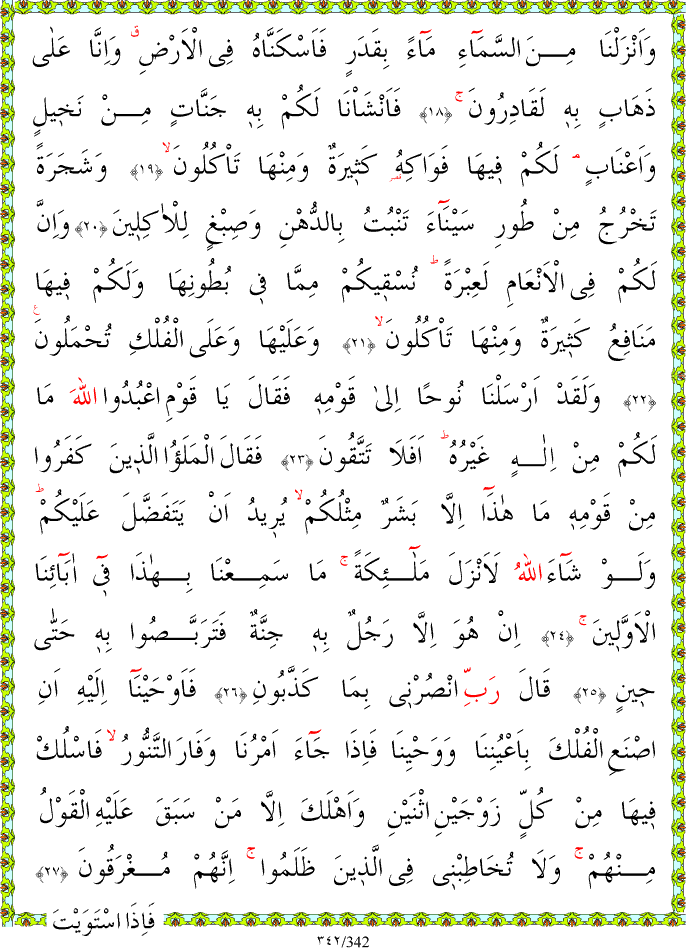 وَاَنْزَلْنَا مِـــنَ السَّمَٓاءِ مَٓاءً بِقَدَرٍ فَاَسْكَنَّاهُ فِى الْاَرْضِۗ وَاِنَّا عَلٰى
ذَهَابٍ بِهٖ لَقَادِرُونَۚ ﴿١٨﴾ فَاَنْشَاْنَا لَكُمْ بِهٖ جَنَّاتٍ مِـــنْ نَخٖيلٍ
وَاَعْنَابٍۢ لَكُمْ فٖيهَا فَوَاكِهُ كَثٖيرَةٌ وَمِنْهَا تَاْكُلُونَۙ ﴿١٩﴾ وَشَجَرَةً
تَخْرُجُ مِنْ طُورِ سَيْنَٓاءَ تَنْبُتُ بِالدُّهْنِ وَصِبْغٍ لِلْاٰكِلٖينَ ﴿٢٠﴾ وَاِنَّ
لَكُمْ فِى الْاَنْعَامِ لَعِبْرَةًۜ نُسْقٖيكُمْ مِمَّا فٖى بُطُونِهَا وَلَكُمْ فٖيهَا
مَنَافِعُ كَثٖيرَةٌ وَمِنْهَا تَاْكُلُونَۙ ﴿٢١﴾ وَعَلَيْهَا وَعَلَى الْفُلْكِ تُحْمَلُونَ ع
﴿٢٢﴾ وَلَقَدْ اَرْسَلْنَا نُوحًا اِلٰى قَوْمِهٖ فَقَالَ يَا قَوْمِ اعْبُدُوا اللّٰهَ مَا
لَكُمْ مِنْ اِلٰـــهٍ غَيْرُهُۜ اَفَلَا تَتَّقُونَ ﴿٢٣﴾ فَقَالَ الْمَلَؤُا الَّذٖينَ كَفَرُوا
مِنْ قَوْمِهٖ مَا هٰذَٓا اِلَّا بَشَرٌ مِثْلُكُمْۙ يُرٖيدُ اَنْ يَتَفَضَّلَ عَلَيْكُمْۜ
وَلَـــوْ شَٓاءَ اللّٰهُ لَاَنْزَلَ مَلٰٓـــئِكَةًۚ مَا سَمِـــعْنَا بِـــهٰذَا فٖٓى اٰبَٓائِنَا
الْاَوَّلٖينَۚ ﴿٢٤﴾ اِنْ هُوَ اِلَّا رَجُلٌ بِهٖ جِنَّةٌ فَتَرَبَّـــصُوا بِهٖ حَتّٰى
حٖينٍ ﴿٢٥﴾ قَالَ رَبِّ انْصُرْنٖى بِمَا كَذَّبُونِ ﴿٢٦﴾ فَاَوْحَيْنَٓا اِلَيْهِ اَنِ
اصْنَعِ الْفُلْكَ بِاَعْيُنِنَا وَوَحْيِنَا فَاِذَا جَٓاءَ اَمْرُنَا وَفَارَ التَّنُّورُۙ فَاسْلُكْ
فٖيهَا مِنْ كُلٍّ زَوْجَيْنِ اثْنَيْنِ وَاَهْلَكَ اِلَّا مَنْ سَبَقَ عَلَيْهِ الْقَوْلُ
مِـــنْهُمْۚ وَلَا تُخَاطِبْنٖى فِى الَّذٖينَ ظَلَمُواۚ اِنَّهُمْ مُـــغْرَقُونَ ﴿٢٧﴾
فَاِذَا اسْتَوَيْتَ
٣٤٢/342